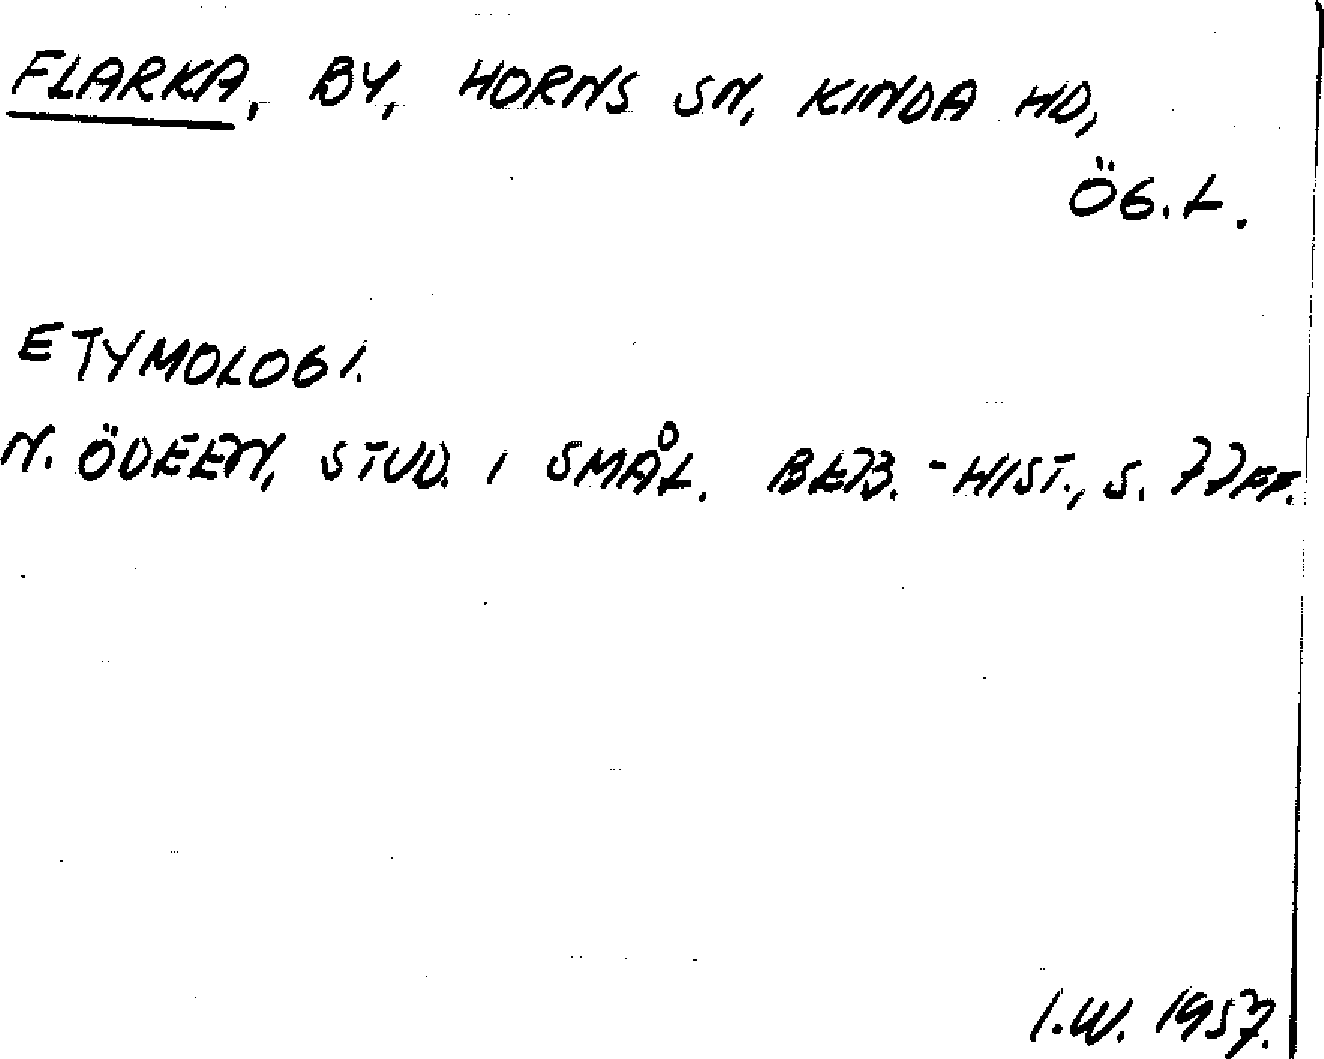 FLARKA, BY, HORNS SN, KINDA HD,
ÖG.L.
ETYMOLOGI.
N. ÖDEEN, STUD. I SMÅL. BEB.-HIST., S. 77FF.
I.W. 1957.